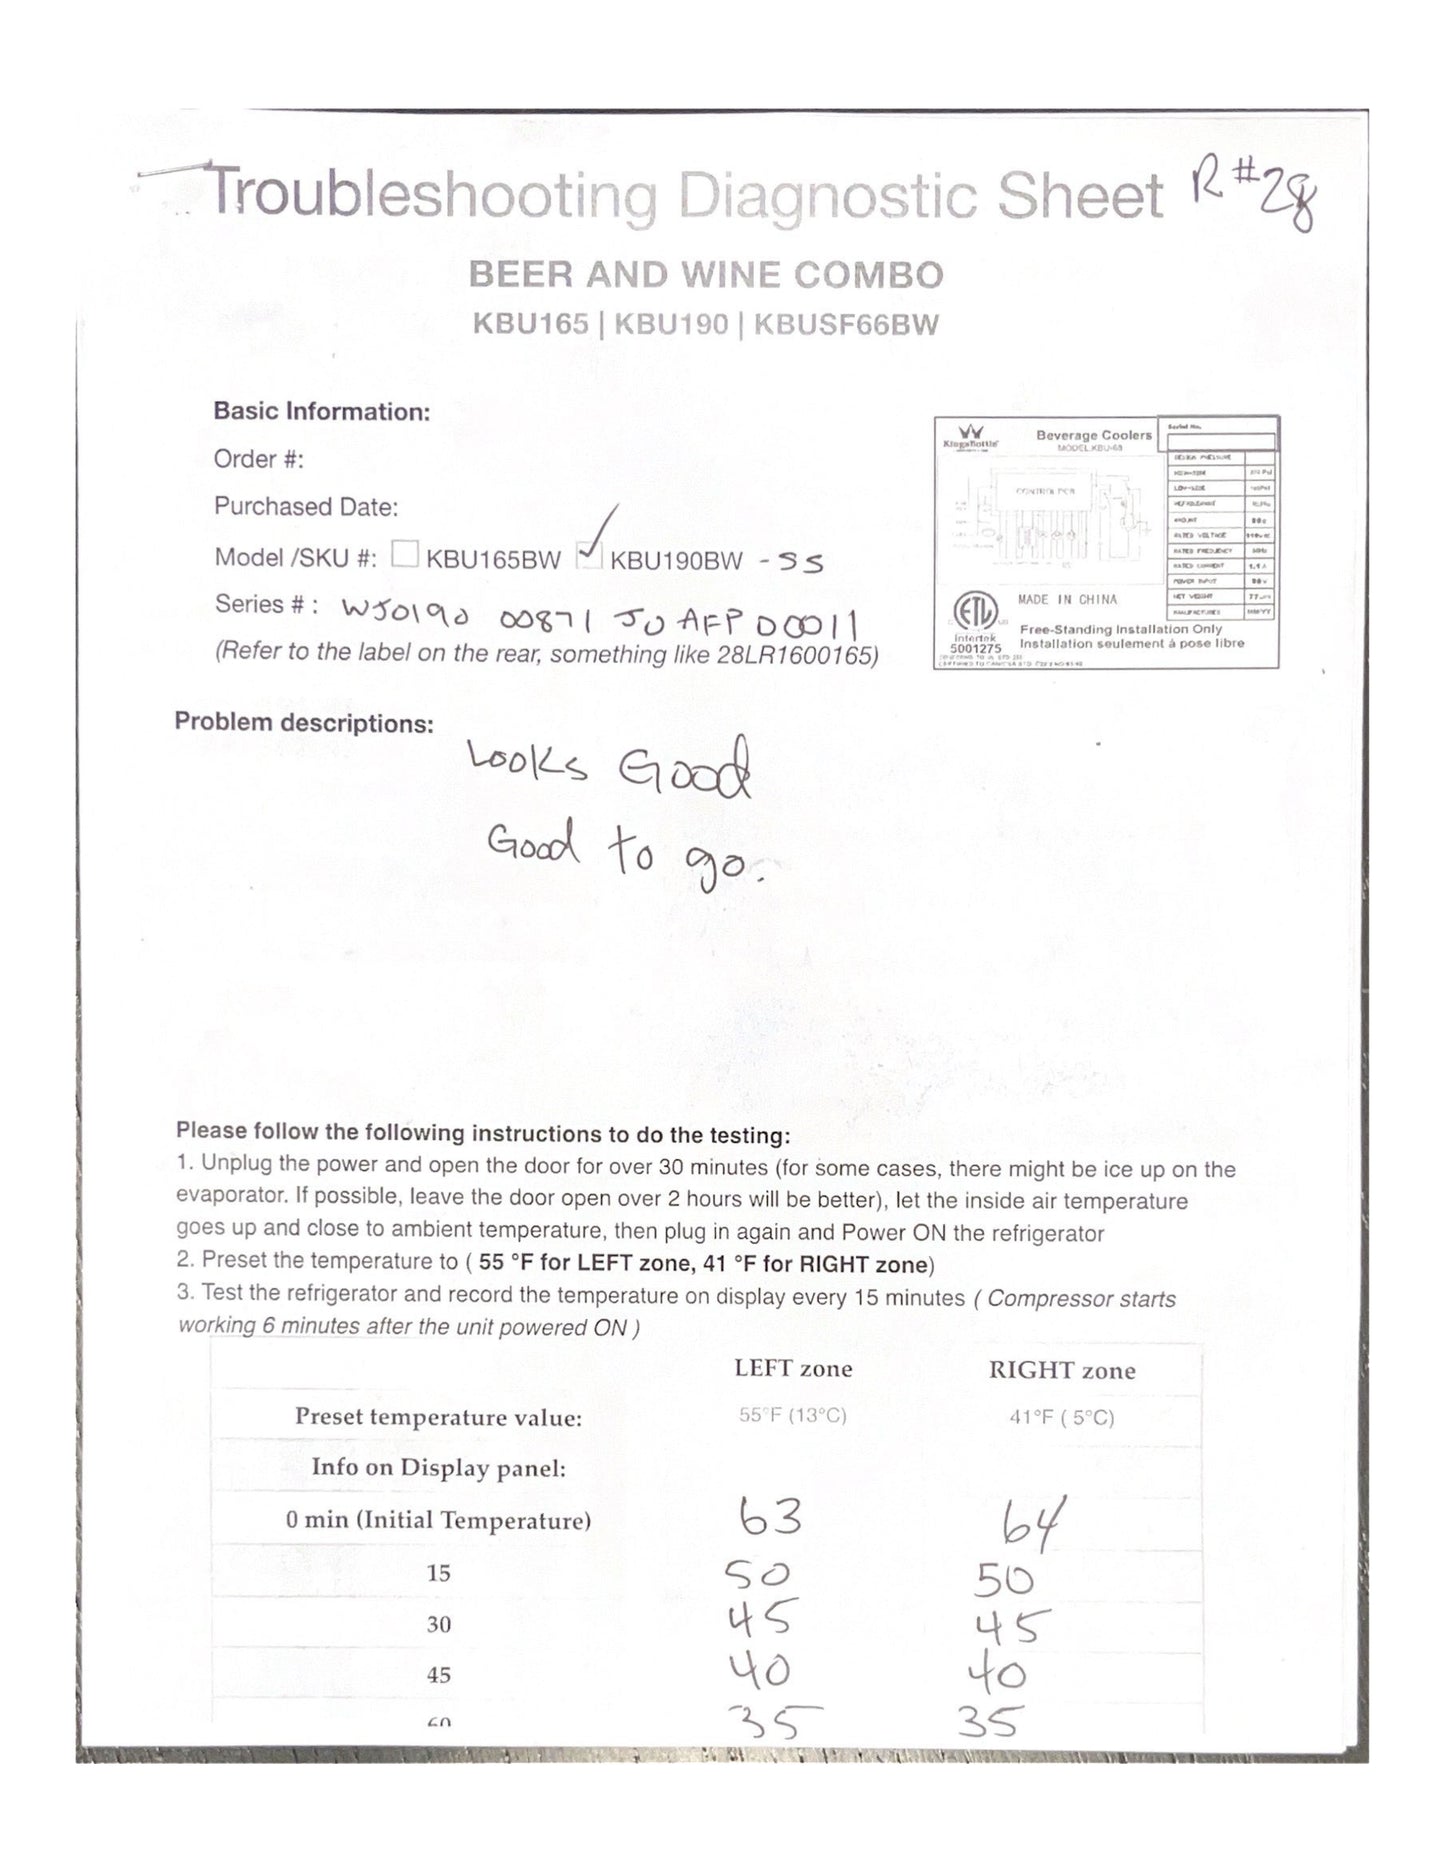 Troubleshooting Diagnostic Sheet R#28
BEER AND WINE COMBO
KBU165 | KBU190 | KBUSF66BW
Basic Information:
Order #:
Purchased Date:
Model /SKU #: KBU165BW KBU190BW - SS
Series # : WJ0190 00871 JU AFP00011
(Refer to the label on the rear, something like 28LR1600165)
KingsBottle
Beverage Coolers
MODEL KBU-68
Serial No.
CONTROL PCB
DESIGN PRESSURE
HIGH-SIDE
LOW-SIDE
REFRIGERANT
AMOUNT
RATED VOLTAGE
RATED FREQUENCY 60Hz
RATED CURRENT 1.1 A
POWER INPUT
NET WEIGHT
MM/YY
ETL
Intertek
5001275
MADE IN CHINA
Free-Standing Installation Only
Installation seulement à pose libre
Problem descriptions:
Looks Good
Good to go.
Please follow the following instructions to do the testing:
1. Unplug the power and open the door for over 30 minutes (for some cases, there might be ice up on the
evaporator. If possible, leave the door open over 2 hours will be better), let the inside air temperature
goes up and close to ambient temperature, then plug in again and Power ON the refrigerator
2. Preset the temperature to ( 55 °F for LEFT zone, 41 °F for RIGHT zone)
3. Test the refrigerator and record the temperature on display every 15 minutes ( Compressor starts
working 6 minutes after the unit powered ON )
LEFT zone RIGHT zone
Preset temperature value: 55°F (13°C) 41°F ( 5°C)
Info on Display panel:
0 min (Initial Temperature) 63 64
15 50 50
30 45 45
45 40 40
60 35 35